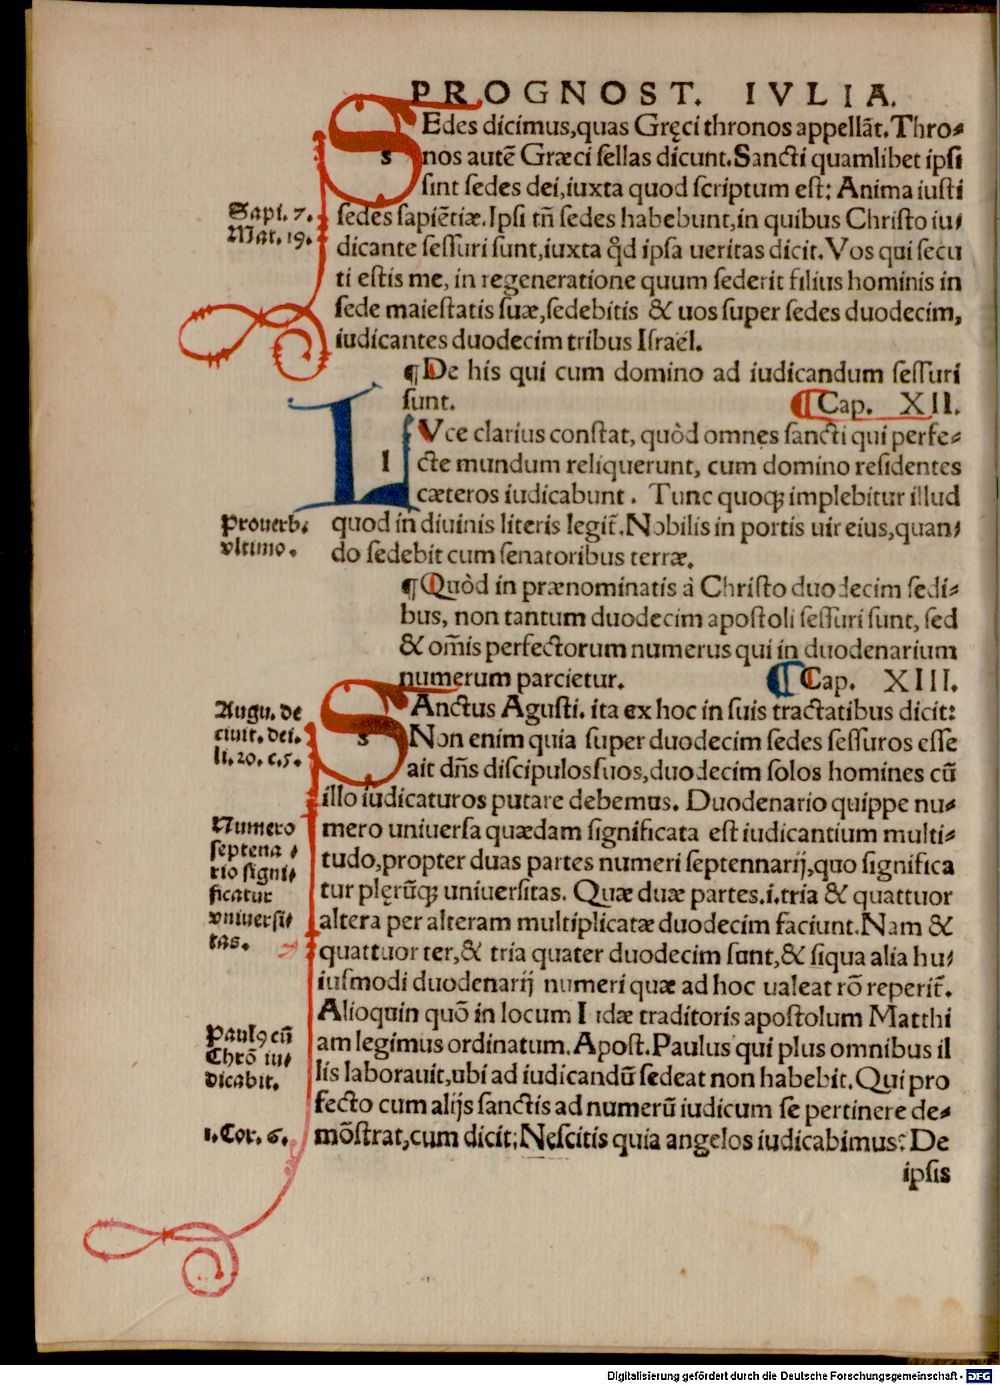 PROGNOST. IVLIA.
SEdes dicimus,quas Gręci thronos appellãt.Thro⸗
nos autẽ Græci sellas dicunt.Sancti quamlibet ipsi
sint sedes dei,iuxta quod scriptum est: Anima iusti
Sapi. 7.
sedes sapiẽtiæ.Ipsi tñ sedes habebunt,in quibus Christo iu⸗
Mat. 19.
dicante sessuri sunt,iuxta qd̃ ipsa ueritas dicit. Vos qui secu
ti estis me, in regeneratione quum sederit filius hominis in
sede maiestatis suæ,sedebitis & uos super sedes duodecim,
iudicantes duodecim tribus Israël.
¶De his qui cum domino ad iudicandum sessuri
sunt. ¶Cap. XII.
LVce clarius constat, quòd omnes sancti qui perfe⸗
cte mundum reliquerunt, cum domino residentes
cæteros iudicabunt. Tunc quoqꝫ implebitur illud
Prouerb.
vltimo.
quod in diuinis literis legit̃.Nobilis in portis uir eius,quan⸗
do sedebit cum senatoribus terræ.
¶Quòd in prænominatis à Christo duodecim sedi⸗
bus, non tantum duodecim apostoli sessuri sunt, sed
& om̃is perfectorum numerus qui in duodenarium
numerum parcietur. ¶Cap. XIII.
Augu. de
ciuit. dei.
li. 20. c. 5.
SAnctus Agusti. ita ex hoc in suis tractatibus dicit:
Non enim quia super duodecim sedes sessuros esse
ait dñs discipulos suos,duodecim solos homines cũ
illo iudicaturos putare debemus. Duodenario quippe nu⸗
Numero
septena⸗
rio signi⸗
ficatur
vniuersi⸗
tas.
mero uniuersa quædam significata est iudicantium multi⸗
tudo,propter duas partes numeri septennarij,quo significa
tur plęrũqꝫ uniuersitas. Quæ duæ partes.i.tria & quattuor
altera per alteram multiplicatæ duodecim faciunt.Nam &
quattuor ter,& tria quater duodecim sunt,& siqua alia hu⸗
iusmodi duodenarij numeri quæ ad hoc ualeat rõ reperit̃.
Alioquin quõ in locum Iudæ traditoris apostolum Matthi
Paulꝰ cũ
Chrõ iu⸗
dicabit.
am legimus ordinatum.Apost.Paulus qui plus omnibus il
lis laborauit,ubi ad iudicandũ sedeat non habebit.Qui pro
fecto cum alijs sanctis ad numerũ iudicum se pertinere de⸗
1. Cor. 6.
mõstrat,cum dicit;Nescitis quia angelos iudicabimus? De
ipsis
Digitalisierung gefördert durch die Deutsche Forschungsgemeinschaft - DFG